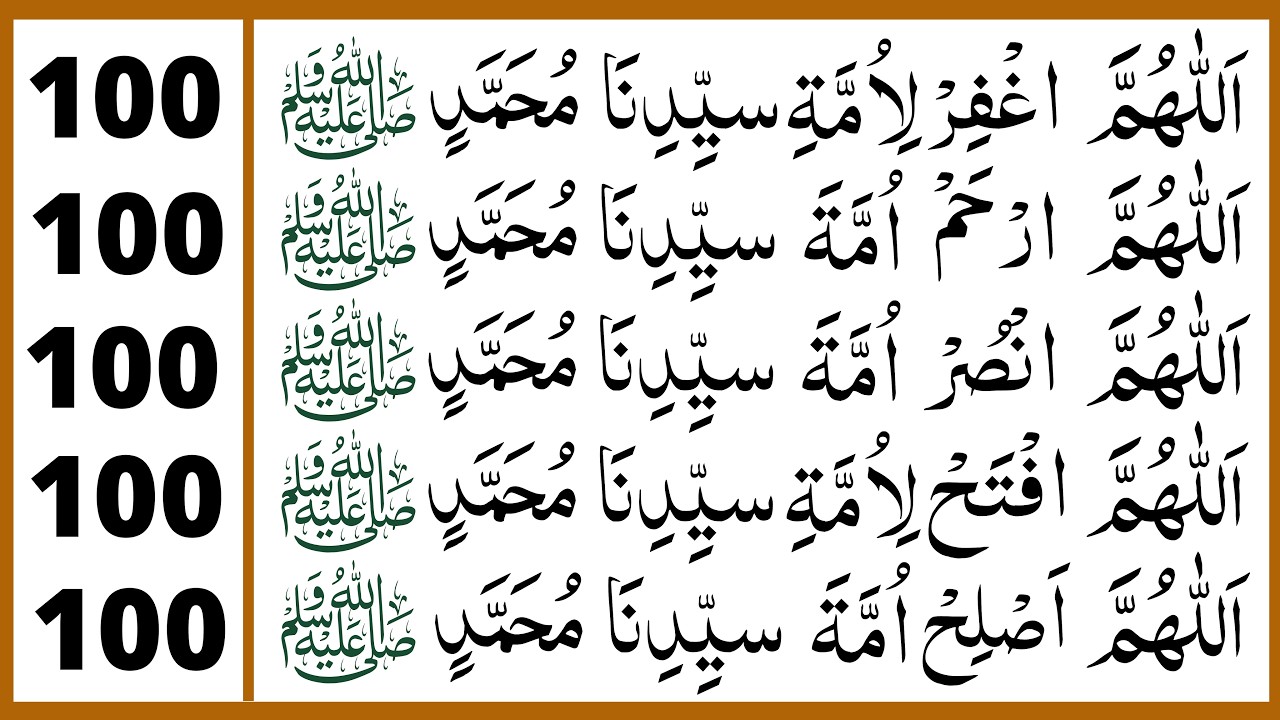 اَللّٰهُمَّ اغْفِرْ لِاُمَّةِ سيِّدِنَا مُحَمَّدٍ صَلَّى اللهُ عَلَيْهِ وَسَلَّمَ 100
اَللّٰهُمَّ ارْحَمْ اُمَّةَ سيِّدِنَا مُحَمَّدٍ صَلَّى اللهُ عَلَيْهِ وَسَلَّمَ 100
اَللّٰهُمَّ انْصُرْ اُمَّةَ سيِّدِنَا مُحَمَّدٍ صَلَّى اللهُ عَلَيْهِ وَسَلَّمَ 100
اَللّٰهُمَّ افْتَحْ لِاُمَّةِ سيِّدِنَا مُحَمَّدٍ صَلَّى اللهُ عَلَيْهِ وَسَلَّمَ 100
اَللّٰهُمَّ اَصْلِحْ اُمَّةَ سيِّدِنَا مُحَمَّدٍ صَلَّى اللهُ عَلَيْهِ وَسَلَّمَ 100